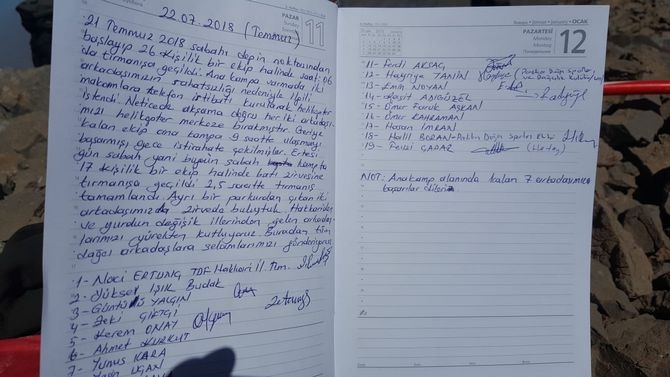 22.07.2018 (Temmuz)
PAZAR
Sunday
11
21 Temmuz 2018 sabah depin noktasından
başlayıp 26 kişilik bir ekip halinde saat: 06
da tırmanışa geçildi. Ana kampa varmada iki
arkadaşımızın rahatsızlığı nedeniyle ilgili
makamlara telefon irtibatı kurularak helikopter
istendi. Neticede akşama doğru her iki arkadaşı-
mızı helikopter merkeze bırakmıştır. Geriye
kalan ekip ana kampa 9 saatte ulaşmayı
başarmış gece istirahate çekilmişler. Ertesi
gün sabah yani bugün sabah kampta
17 kişilik bir ekip halinde batı zirvesine
tırmanışa geçildi 2,5 saatte tırmanış
tamamlandı. Ayrı bir parkurdan çıkan iki
arkadaşımızda zirvede buluştuk Hakkariden
ve yurdun değişik illerinden gelen arkadaş-
larımızı yürekten kutluyoruz Buradan tüm
dağcı arkadaşlara selamlarımızı gönderiyoruz
1- Naci ERTUNÇ TDF Hakkari İl Tem.
2- Yüksel IŞIK Budak
3- YALGIN
4- Zeki ÇİFTÇİ
5- Kerem ONAY
6- Ahmet KURKUT
7- Yunus KARA
UÇAN
Январь • Januar • January • OCAK
PAZARTESİ
Monday
Montag
Понедельник
12
11- Ferdi AKSAÇ
12- Hayriye TANIN (Patika Doğa Sporları
ve Dağcılık Kulübü
13- Emin NOYAN
14- Raşit ADIGÜZEL
15- Ömer Faruk AŞKAN
16- Ömer KAHRAMAN
17- Hasan İMRAN
18- Halil BORAN-Patika Doğa Sporları Klbü
19- Fevzi ÇADAR
NOT: Anakamp alanında kalan 7 arkadaşımıza
başarılar dileriz